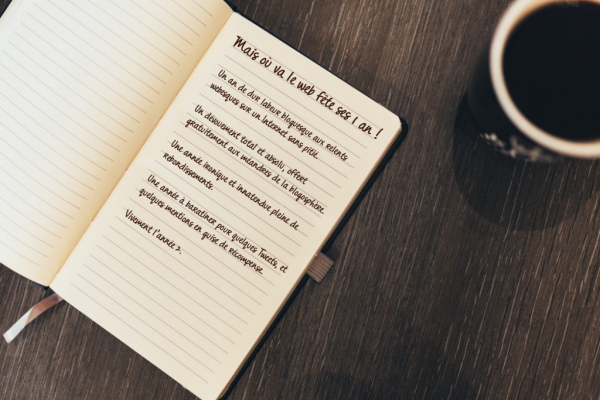 Mais où va le web fête ses 1 an !
Un an de dur labeur bloguesque aux relents
webesques sur un Internet sans pitié.
Un dévouement total et absolu, offert
gratuitement aux méandres de la blogosphère.
Une année ironique et innatendue pleine de
rebondissements.
Une année à baratiner pour quelques Tweets, et
quelques mentions en guise de récompense.
Vivement l'année 2.